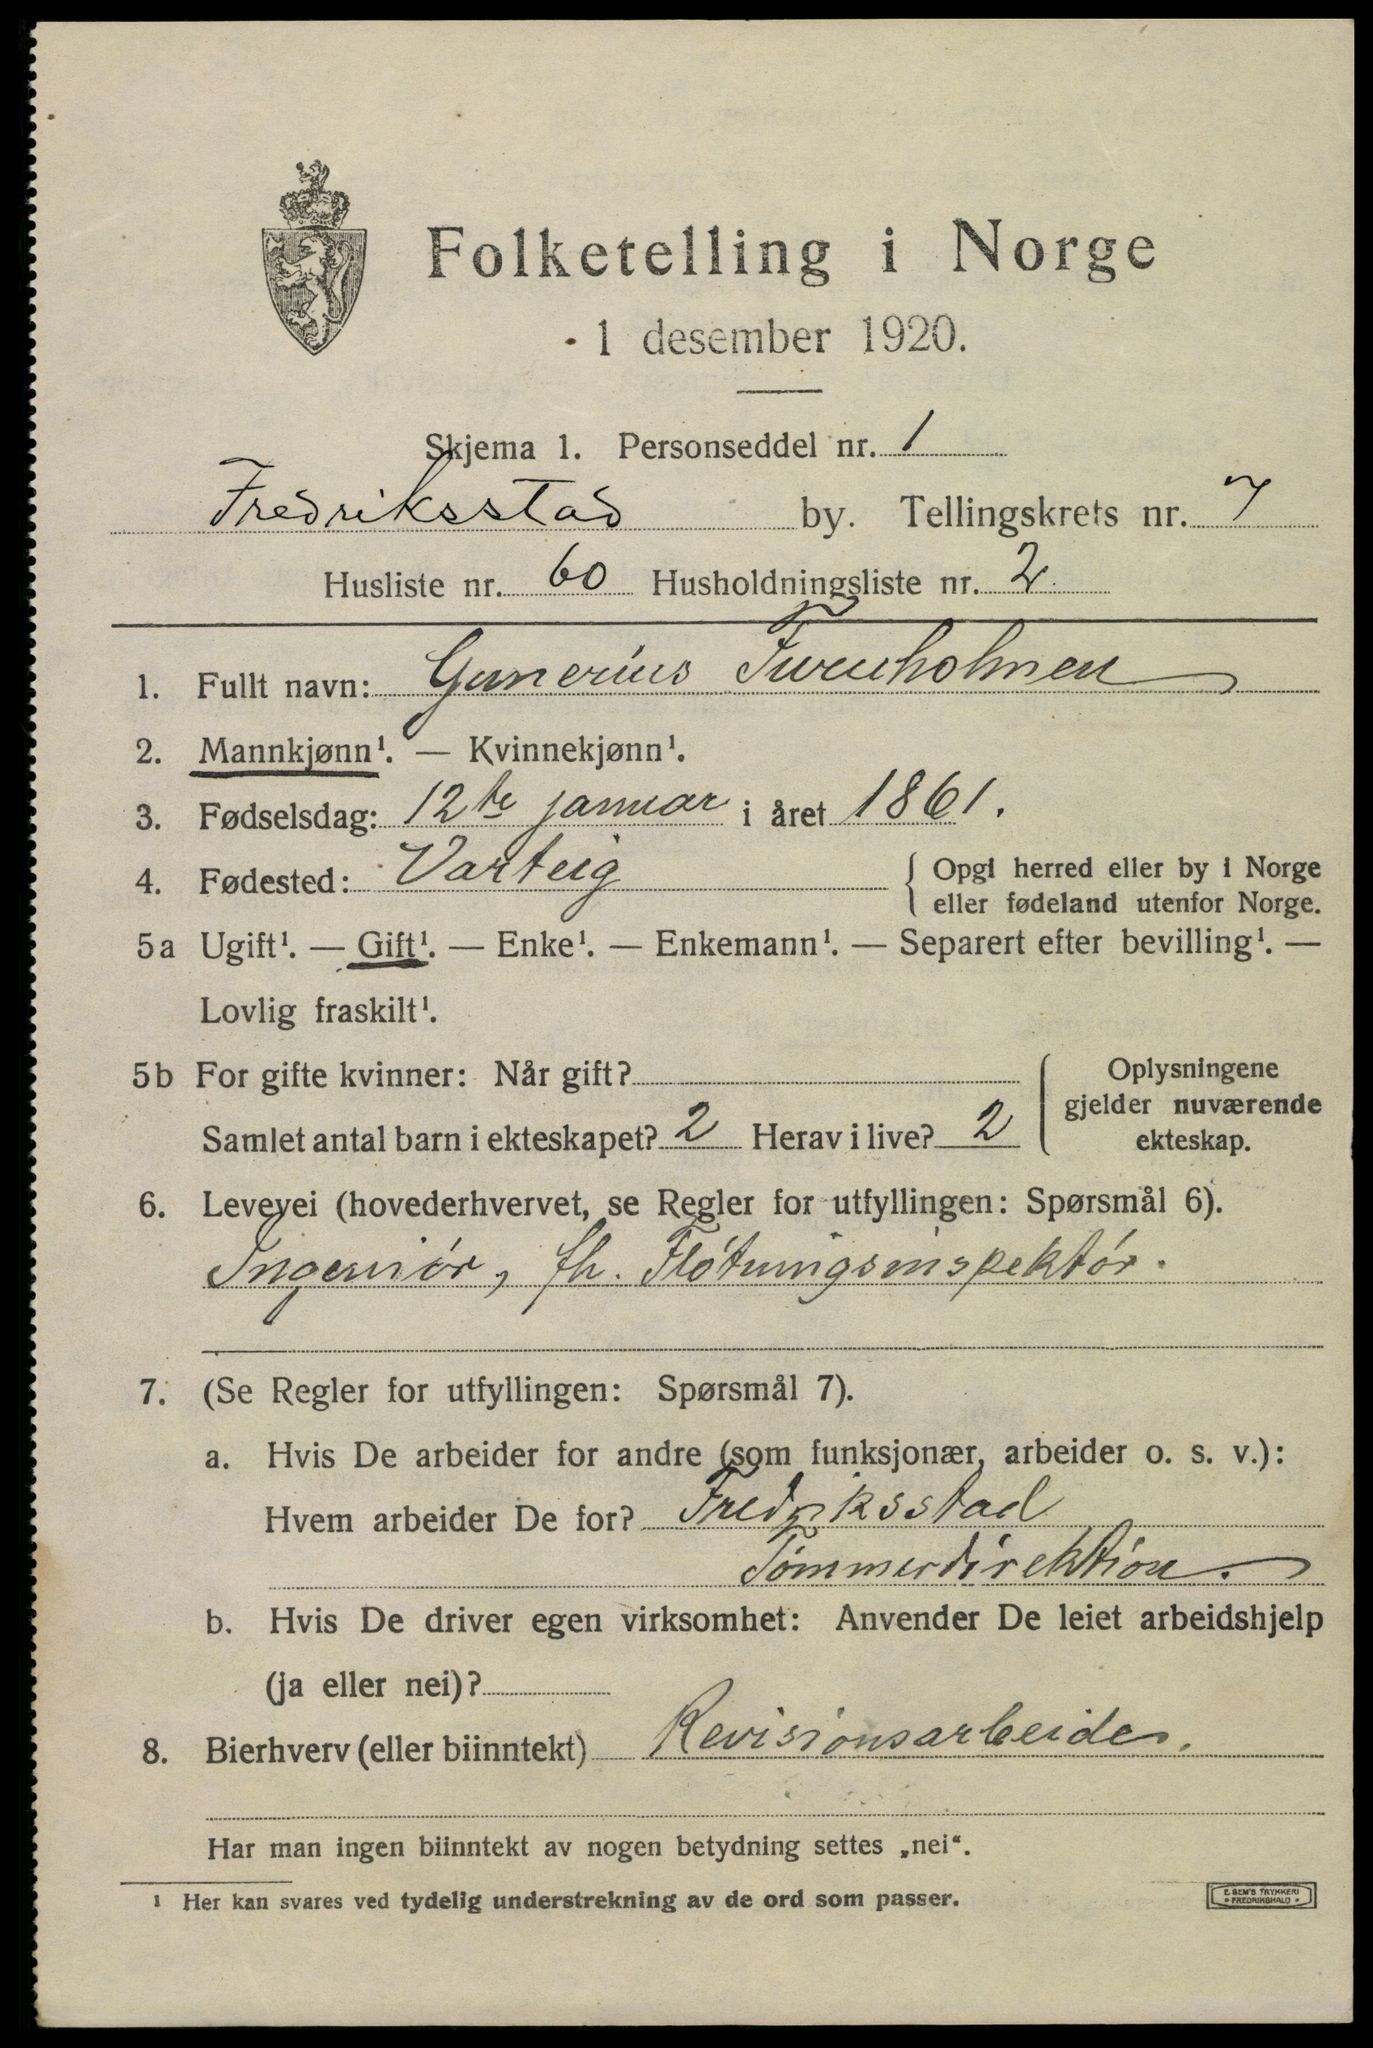 Folketelling i Norge
1 desember 1920.
Skjema 1. Personseddel nr. 1
Fredriksstad by. Tellingskrets nr. 7
Husliste nr. 60 Husholdningsliste nr. 2
1. Fullt navn: Gunerius Furuholmen
2. Mannkjønn¹. — Kvinnekjønn¹.
3. Fødselsdag: 12te januar i året 1861.
4. Fødested: Varteig { Opgi herred eller by i Norge
eller fødeland utenfor Norge.
5a Ugift¹. — Gift¹. — Enke¹. — Enkemann¹. — Separert efter bevilling¹. —
Lovlig fraskilt¹.
5b For gifte kvinner: Når gift? { Oplysningene
gjelder nuværende
Samlet antal barn i ekteskapet? 2 Herav i live? 2 ekteskap.
6. Levevei (hovederhvervet, se Regler for utfyllingen: Spørsmål 6).
Ingeniør, fh. Fløtningsinspektør.
7. (Se Regler for utfyllingen: Spørsmål 7).
a. Hvis De arbeider for andre (som funksjonær, arbeider o. s. v.):
Hvem arbeider De for? Fredriksstad
Tømmerdirektion.
b. Hvis De driver egen virksomhet: Anvender De leiet arbeidshjelp
(ja eller nei)?
8. Bierhverv (eller biinntekt) Revisionsarbeide.
Har man ingen biinntekt av nogen betydning settes „nei“.
¹ Her kan svares ved tydelig understrekning av de ord som passer.
E. SEM'S TRYKKERI
FREDRIKSHALD